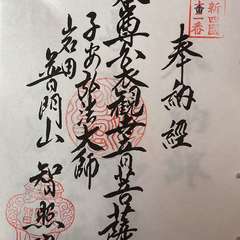 新四國
壹一番
奉納經
尊大觀世音菩薩
子安弘法大師
岩田
普門山
智照